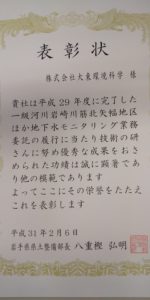 表彰状
株式会社大東環境科学 様
貴社は平成29年度に完了した
一級河川岩崎川筋北矢幅地区
ほか地下水モニタリング業務
委託の履行に当たり技術の研
さんに努め優秀な成果をおさ
められた功績は誠に顕著であ
り他の模範であります
よってここにその栄誉をたたえ
これを表彰します
平成31年2月6日
岩手県県土整備部長 八重樫 弘明